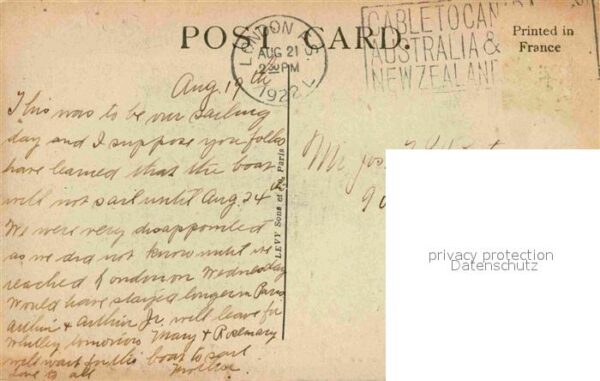 POST CARD.
LONDON F.S.
AUG 21
2 30 PM
1922
CABLE TO CAN
AUSTRALIA &
NEW ZEALAND
Printed in
France
Aug. 19th
This was to be our sailing
day and I suppose you folks
have learned that the boat
will not sail until Aug. 24th
We were very disappointed
as we did not know until we
reached London on Wednesday
Would have stayed longer in Paris
Arthur & Arthur Jr. will leave for
Whitley tomorrow Mary & Rosemary
will wait for the boat to sail
Love to all
LEVY Sons et Co, Paris
Mr. Jos.
privacy protection
Datenschutz